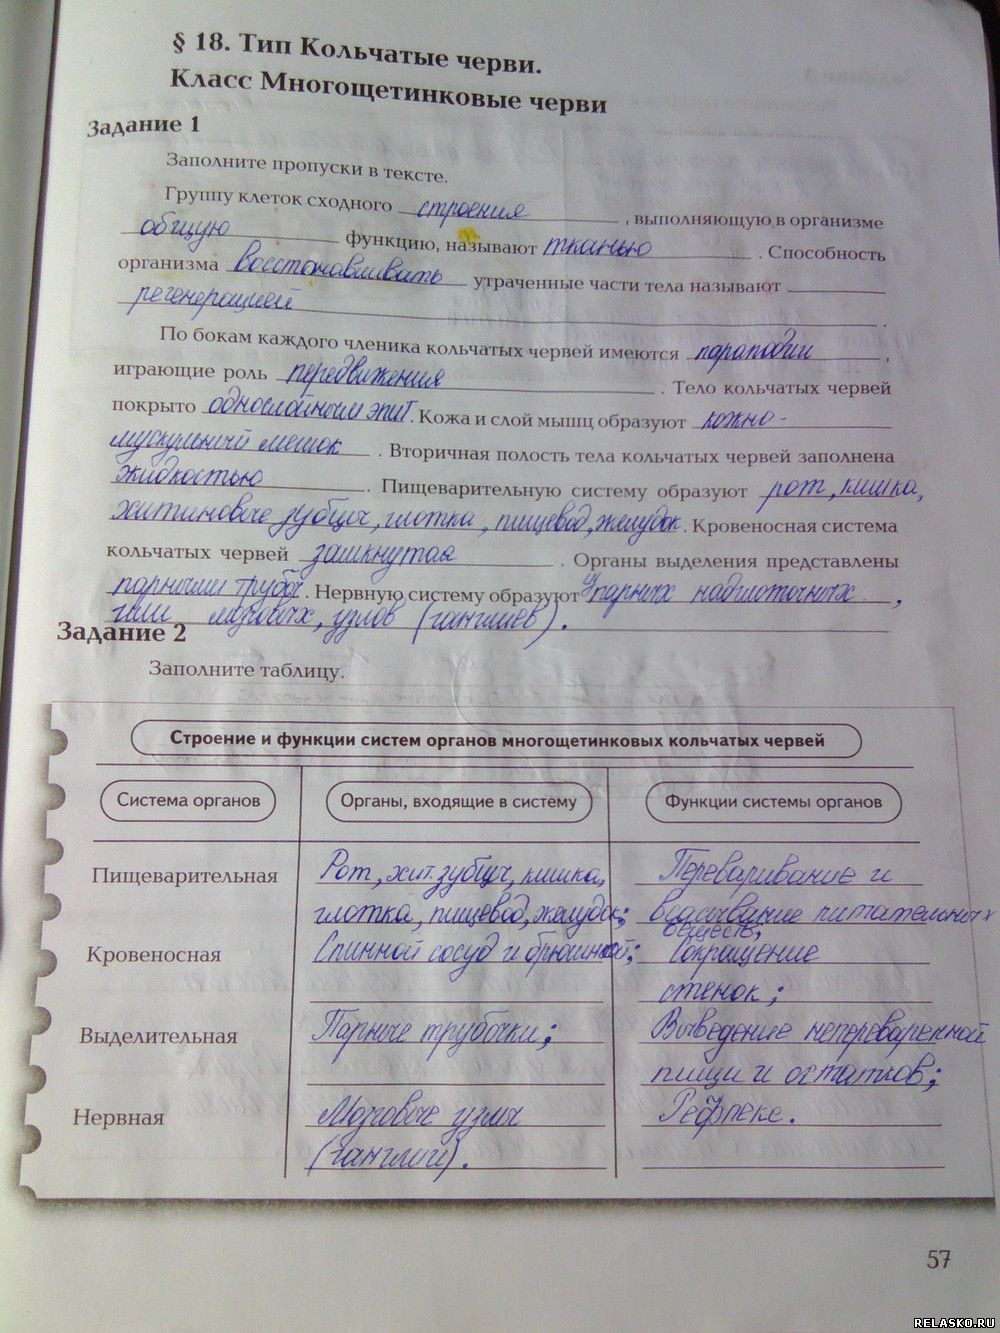 § 18. Тип Кольчатые черви.
Класс Многощетинковые черви
Задание 1
Заполните пропуски в тексте.
Группу клеток сходного строения, выполняющую в организме
общую функцию, называют тканью. Способность
организма восстанавливать утраченные части тела называют
регенерацией.
По бокам каждого членика кольчатых червей имеются параподии,
играющие роль передвижения. Тело кольчатых червей
покрыто однослойным эпит. Кожа и слой мышц образуют кожно-
мускульный мешок. Вторичная полость тела кольчатых червей заполнена
жидкостью. Пищеварительную систему образуют рот, кишка,
хитиновые зубцы, глотка, пищевод, желудок. Кровеносная система
кольчатых червей замкнутая. Органы выделения представлены
парными трубоч. Нервную систему образуют из парных надглоточных,
ками мозговых, узлов (ганглиев).
Задание 2
Заполните таблицу.
Строение и функции систем органов многощетинковых кольчатых червей
Система органов Органы, входящие в систему Функции системы органов
Пищеварительная Рот, хит. зубцы, кишка, Переваривание и
глотка, пищевод, желудок; всасывание питательных
веществ;
Кровеносная Спинной сосуд и брюшной; Сокращение
стенок;
Выделительная Парные трубочки; Выведение непереваренной
пищи и остатков;
Нервная Мозговые узлы Рефлекс.
(ганглии).
57
RELASKO.RU